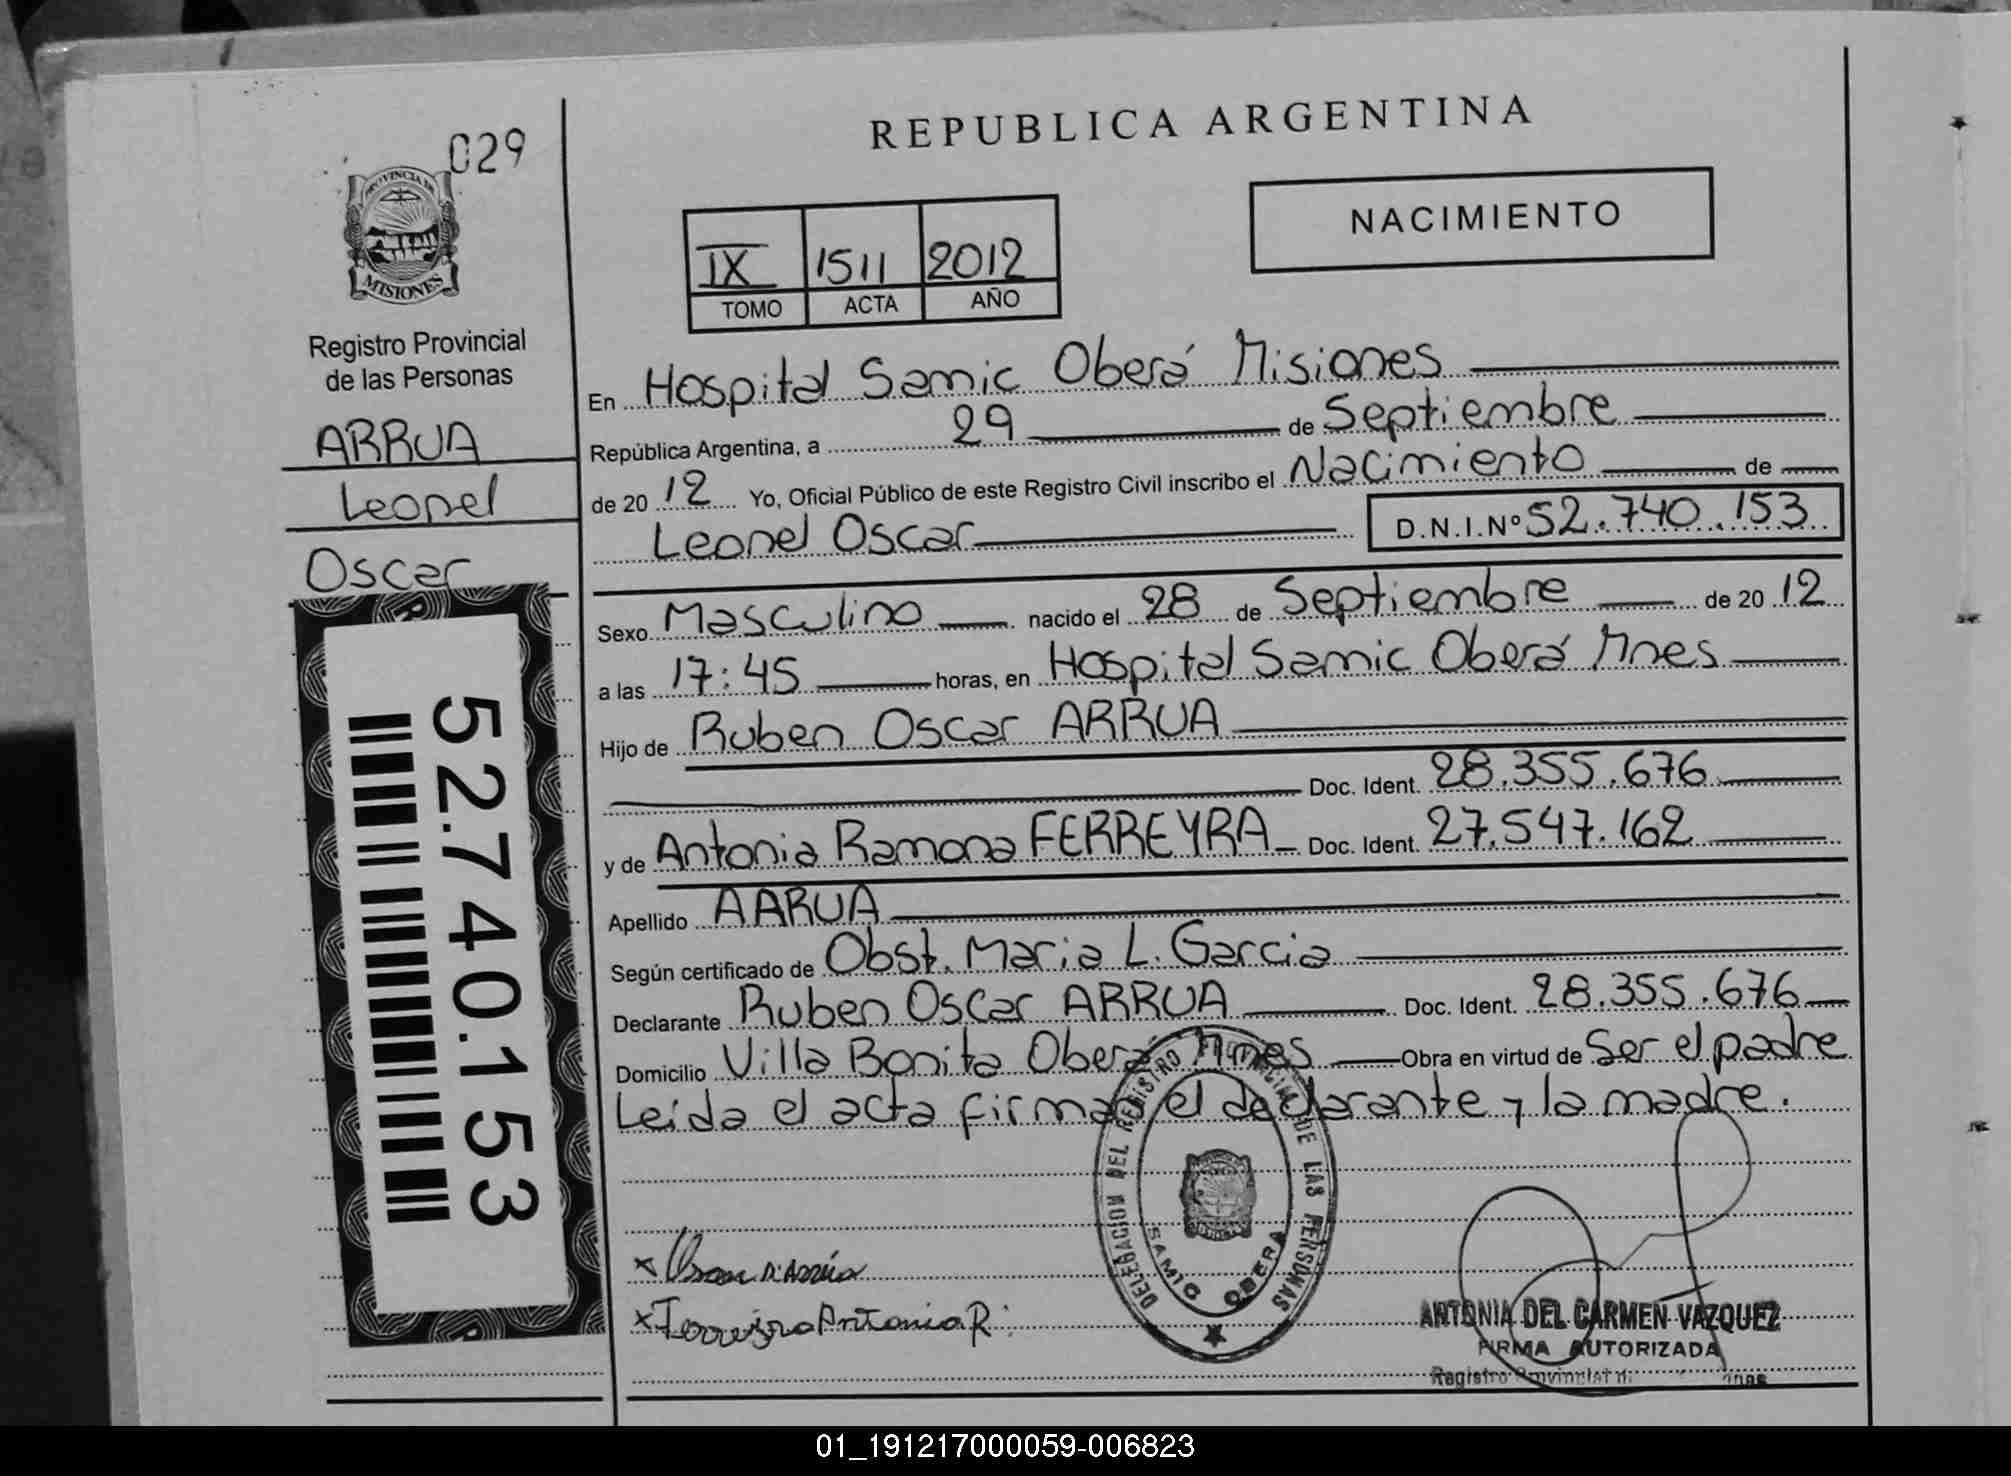 029
PROVINCIA DE
MISIONES
Registro Provincial
de las Personas
ARRUA
Leonel
Oscar
52.740.153
REPUBLICA ARGENTINA
NACIMIENTO
IX 1511 2012
TOMO ACTA AÑO
En Hospital Samic Oberá Misiones
República Argentina, a 29 de Septiembre
de 20 12 Yo, Oficial Público de este Registro Civil inscribo el Nacimiento de
Leonel Oscar D.N.I.Nº 52.740.153
Sexo Masculino nacido el 28 de Septiembre de 20 12
a las 17:45 horas, en Hospital Samic Oberá Mnes
Hijo de Ruben Oscar ARRUA
Doc. Ident. 28.355.676
y de Antonia Ramona FERREYRA Doc. Ident. 27.547.162
Apellido AARUA
Según certificado de Obst. Maria L. Garcia
Declarante Ruben Oscar ARRUA Doc. Ident. 28.355.676
Domicilio Villa Bonita Oberá Mnes Obra en virtud de Ser el padre
Leida el acta firman el declarante y la madre.
DELEGACION DEL REGISTRO PROVINCIAL DE LAS PERSONAS
SAMIC OBERA
x
x Ferreyra Antonia R.
ANTONIA DEL CARMEN VAZQUEZ
FIRMA AUTORIZADA
Registro Provincial
01_191217000059-006823